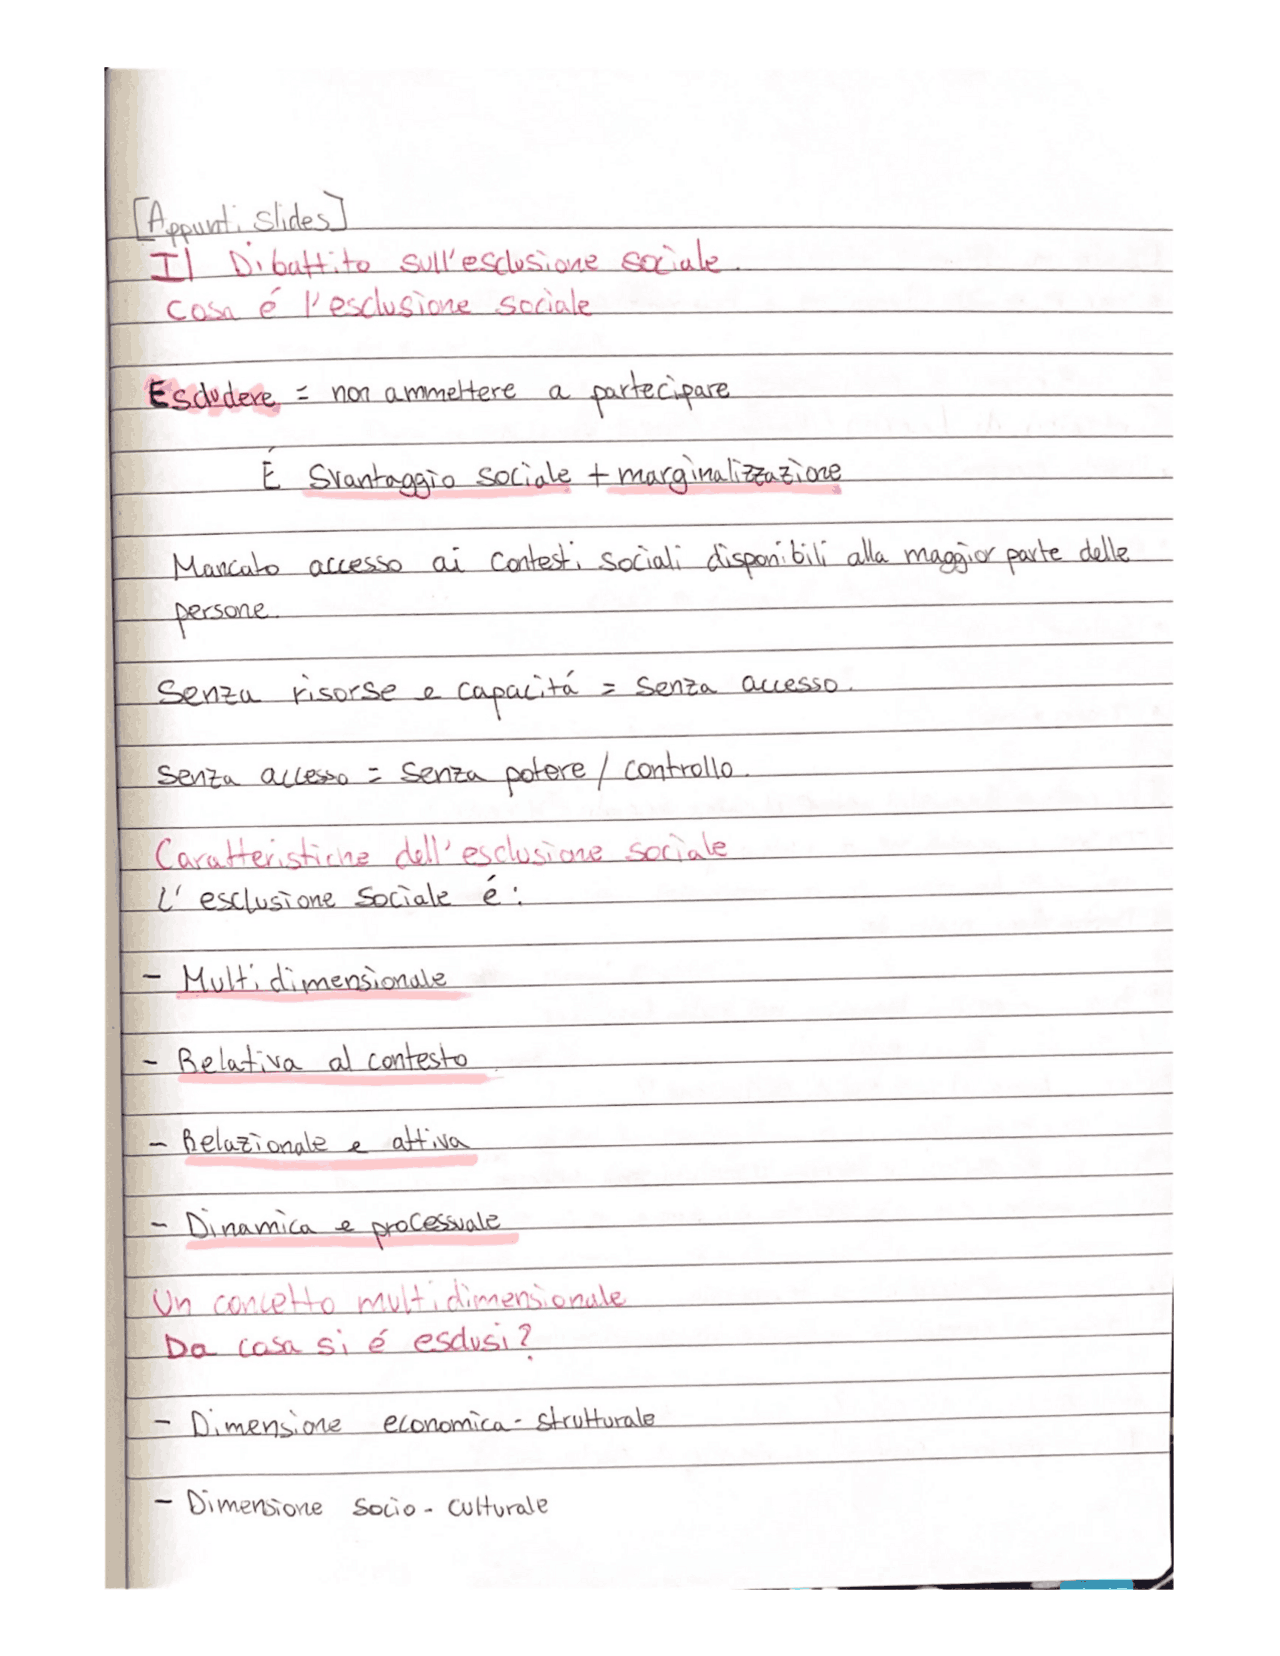 [Appunti slides]
Il Dibattito sull'esclusione sociale.
Cosa é l'esclusione sociale
Escludere = non ammettere a partecipare
É Svantaggio sociale + marginalizzazione
Mancato accesso ai contesti sociali disponibili alla maggior parte delle
persone.
Senza risorse e capacitá = senza accesso.
Senza accesso = senza potere / controllo.
Caratteristiche dell'esclusione sociale
L'esclusione sociale é:
- Multidimensionale
- Relativa al contesto
- Relazionale e attiva
- Dinamica e processuale
Un concetto multidimensionale
Da cosa si é esclusi?
- Dimensione economica-strutturale
- Dimensione socio-culturale